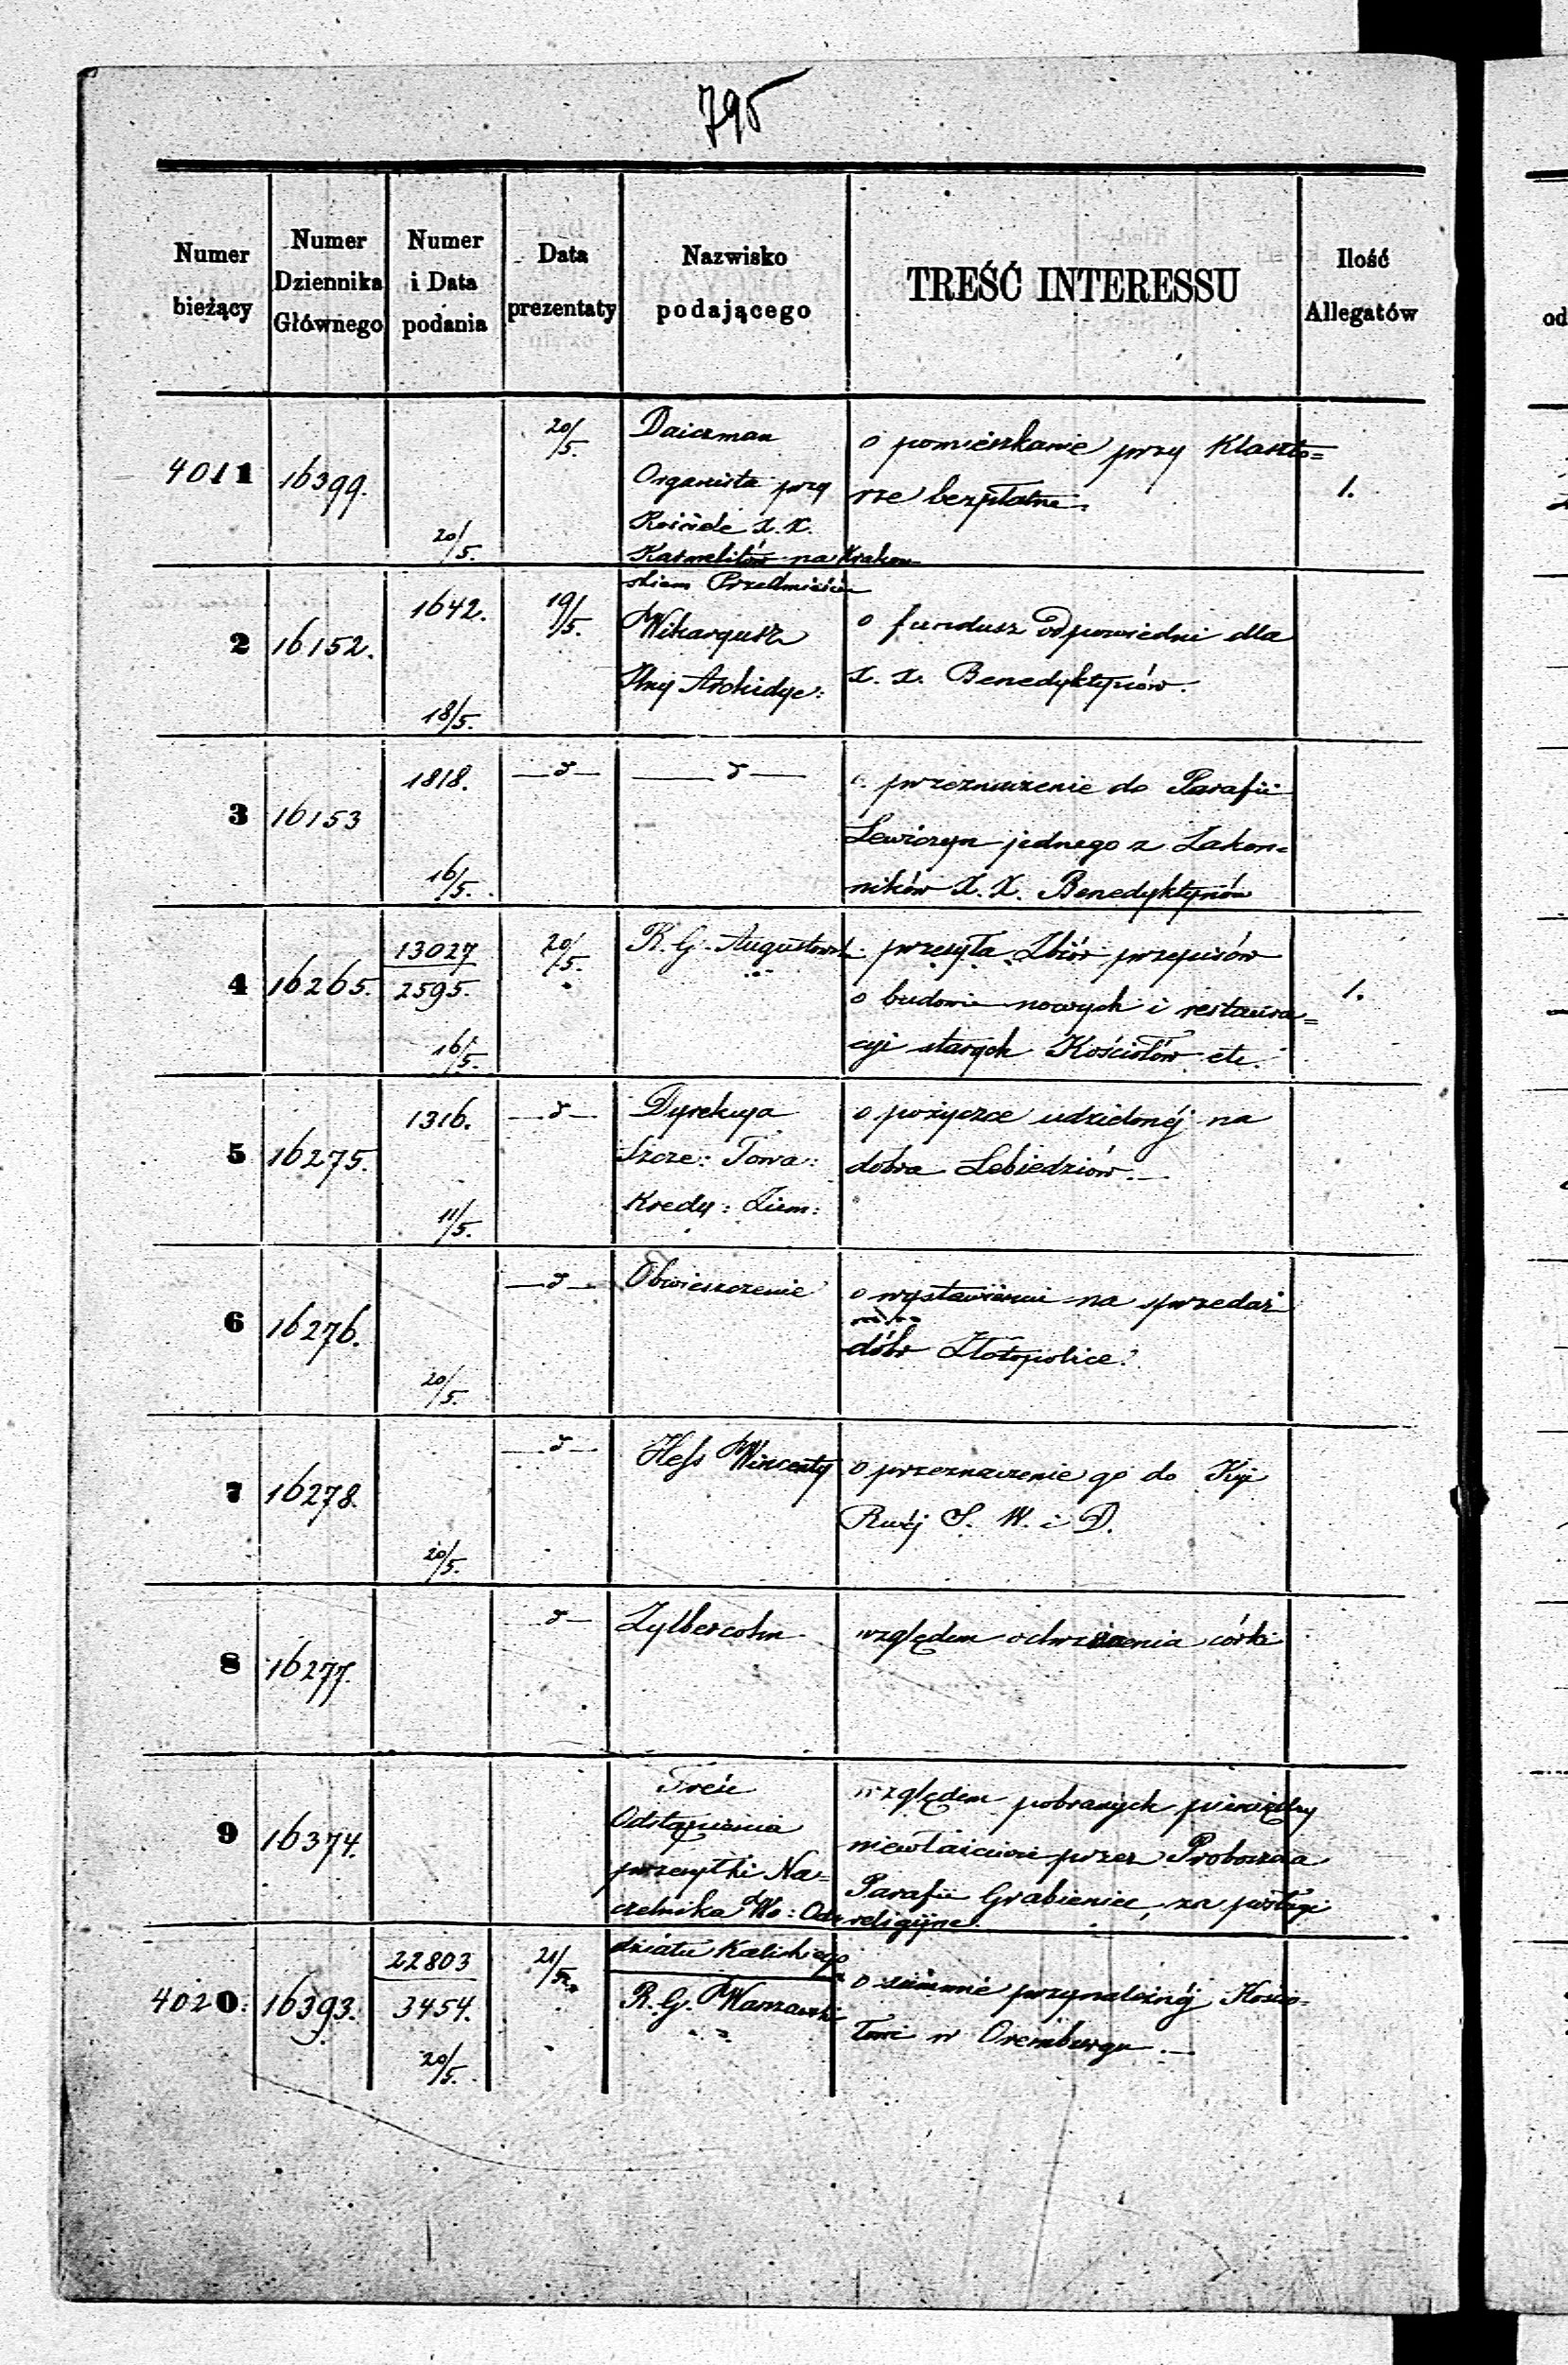 795
Numer bieżący
Numer Dziennika Głównego
Numer i Data podania
Data prezentaty
Nazwisko podającego
TREŚĆ INTERESSU
Ilość Allegatów
4011 16399. 20/5. 20/5.
Daiczman
Organista przy
Kościele X.X.
Karmelitów na Krakow
skiem Przedmieściu
o pomieszkanie przy Klaszto=
rze bezpłatne.
1.
2 16152. 1642. 18/5. 19/5.
Wikaryusz
Archidye:
o fundusz odpowiedni dla
X. X. Benedyktynów.
3 16153 1818. 16/5. —d— —d—
o przeznaczenie do Parafii
Lewiczyn jednego z Zakon=
ników X. X. Benedyktynów
4 16265. 13027 2595. 16/5. 20/5.
R. G. Augustowski
przesyła Zbiór przepisów
o budowie nowych i restaura=
cyi starych Kościołów etc.
1.
5 16275. 1316. 11/5. —d—
Dyrekcya
Szcze: Towa:
Kredy: Ziem:
o pożyczce udzielonéj na
dobra Lebiedziów.—
6 16276. 20/5. —d—
Obwieszczenie
o wystawieniu na sprzedaż
dóbr Złotopolice.
7 16278. 20/5. —d—
Hess Wincenty
o przeznaczenie go do Kyi
Rwéj S. W. i D.
8 16277. d—
Zylbercohn
względem ochrzczenia córki
9 16374.
Treść
Odstąpienia
przesyłki Na=
czelnika Wo: Od
działu Kaliskiego
względem pobranych pieniędzy
niewłaściwie przez Proboszcza
Parafii Grabieniec, za posługi
religijne.
4020. 16393. 22803 3454. 20/5. 21/5.
R. G. Warszawski
o summie przynależnéj Kościo=
łowi w Oremburgu.—